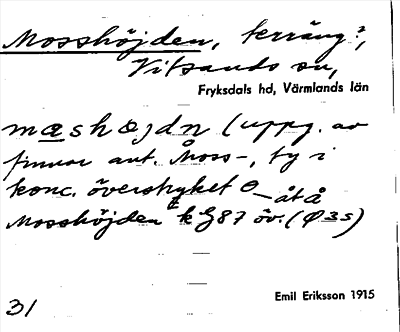 Mosshöjden, terräng?,
Vitsands sn,
Fryksdals hd, Värmlands län
mɷshøjdn (uppg. av
finnar ant. Åmoss-, ty i
konc. överstryket
Mosshöjden k G87 öv. (Ø3s)
31
Emil Eriksson 1915